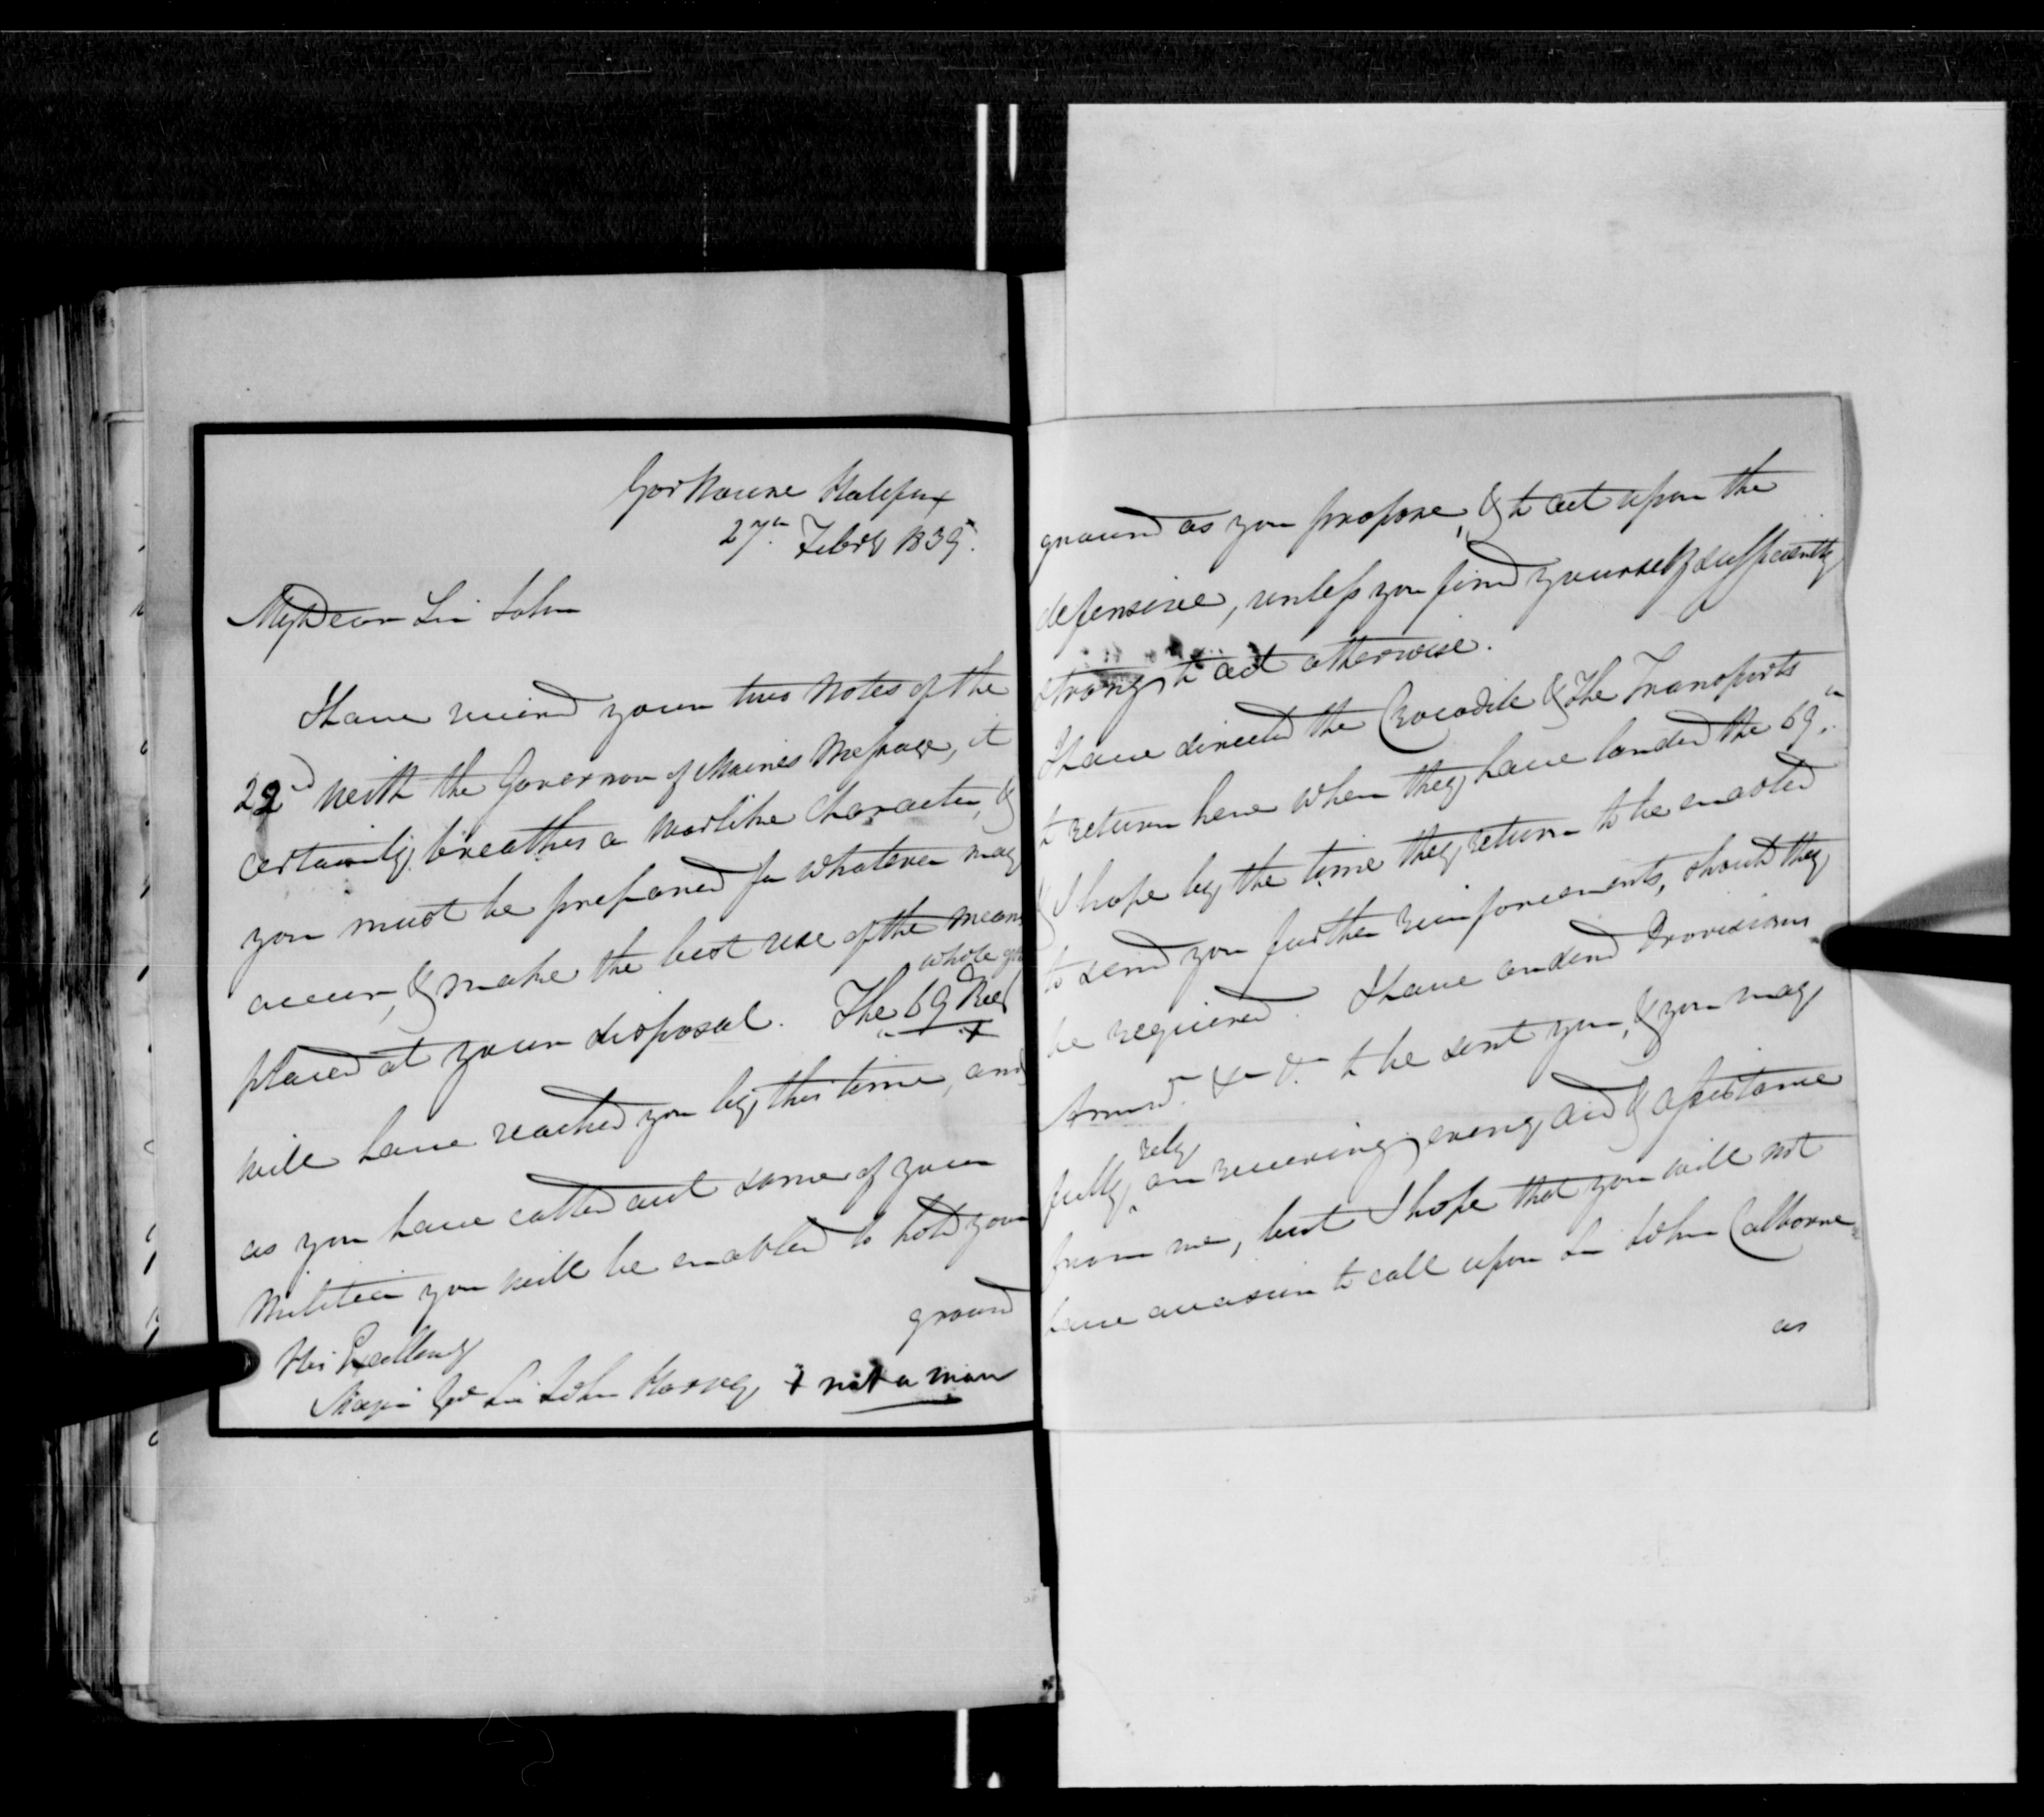 Gov House Halifax
27th Feby 1839.
My Dear Sir John
I have received your two notes of the
22d with the Governor of Maines Message, it
certainly breathes a warlike character, &
you must be prepared for whatever may
occur, & make the best use of the means
placed at your disposal. The 69 Reg
whole
will have reached you by this time, and
as you have called out some of your
Militia you will be enabled to hold your
ground
His Excellency
Major Genl Sir John Harvey + not a man
ground as you propose, & to act upon the
defensive, unless you find yourself sufficiently
strong to act otherwise.
I have directed the Crocodile & the Transports
to return here when they have landed the 69th.
& I hope by the time they return to be enabled
to send you further reinforcements, should they
be required. I have ordered Provisions
Ammn. &c &c to be sent you, & you may
fully rely on receiving every aid & assistance
from me, but I hope that you will not
have occasion to call upon Sir John Colborne
as